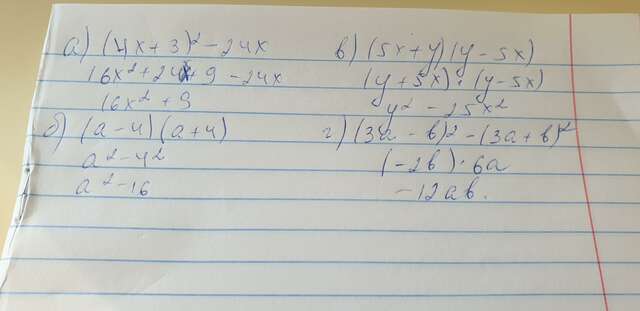 а) (4x+3)² - 24x
16x² + 24x + 9 - 24x
16x² + 9
б) (a-4)(a+4)
a² - 4²
a² - 16
в) (5x+y)(y-5x)
(y+5x)·(y-5x)
y² - 25x²
г) (3a-b)² - (3a+b)²
(-2b)·6a
-12ab.